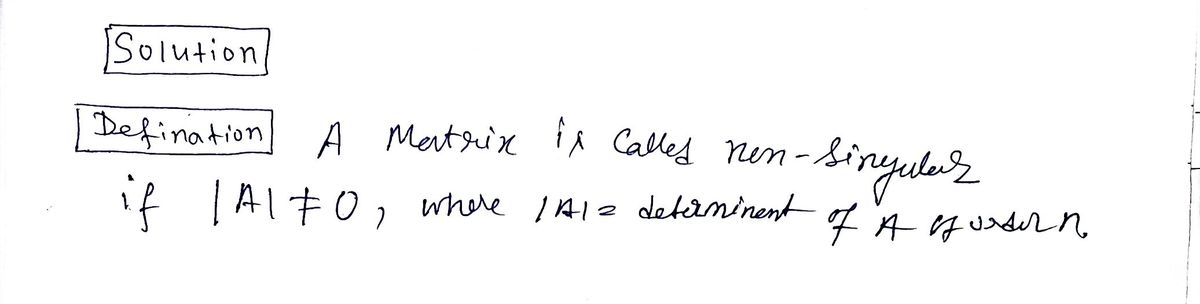 Solution
Defination A Matrix is Called non-singular
if |A| ≠ 0, where |A| = determinent of A of order n